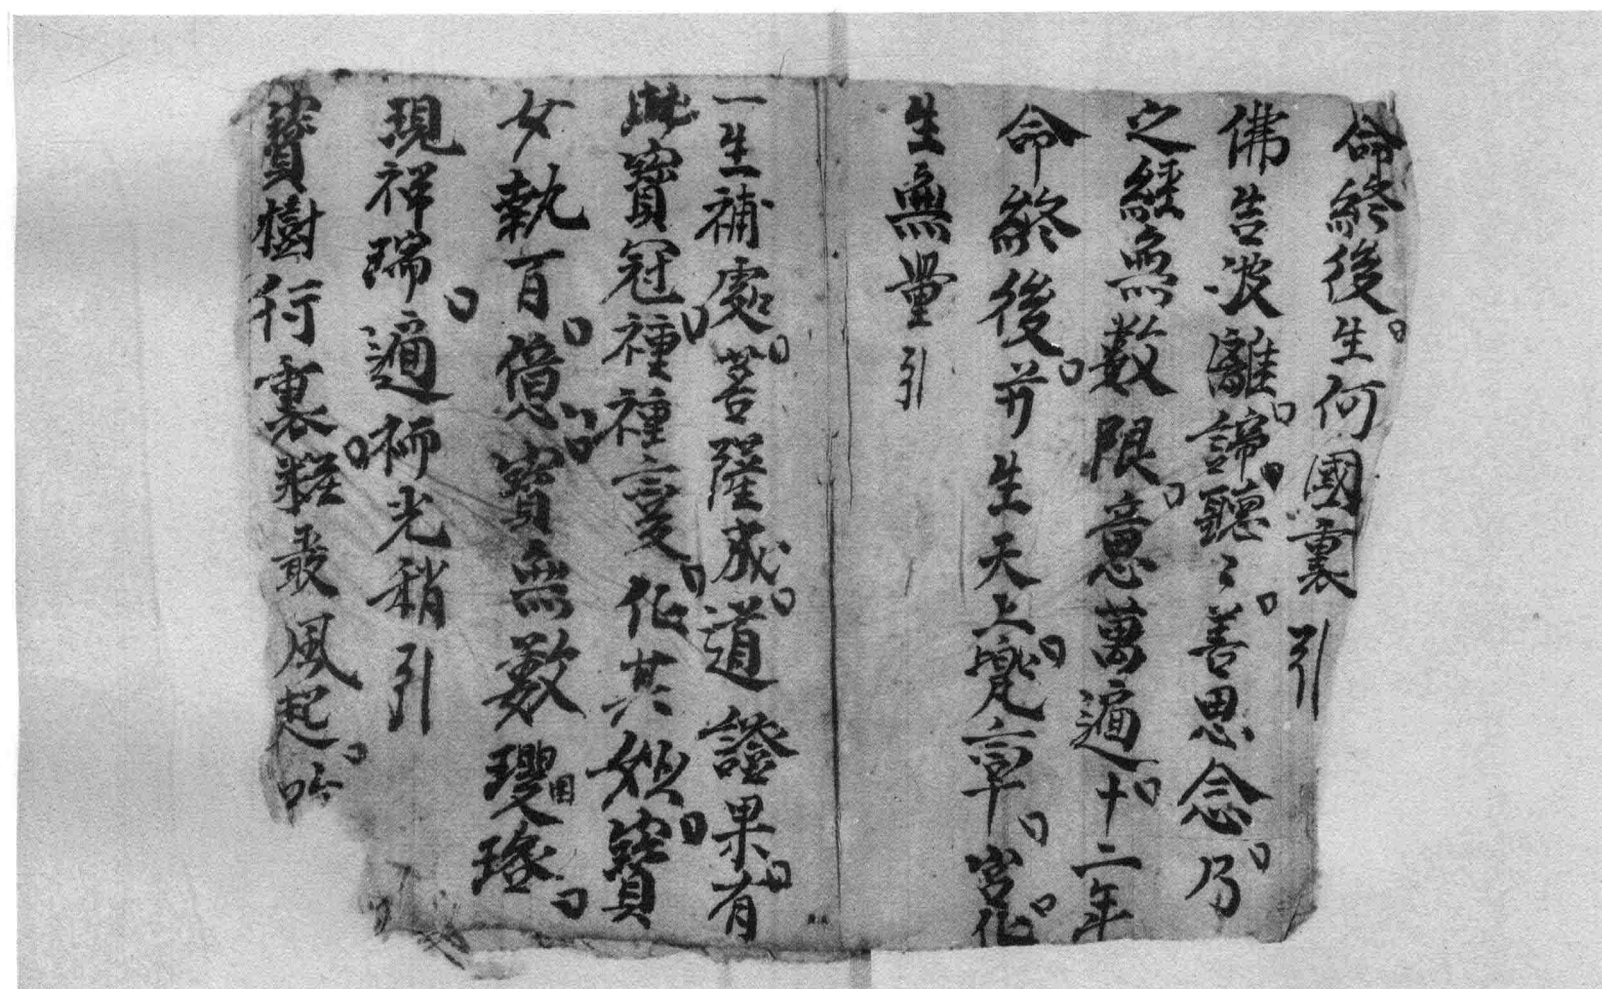 命終後生何國裏 引
佛告波離諦聽〻善思念乃
之經無數限意萬遍十二年
命終後并生天上兜率宮化
生無量 引
一生補處菩薩成道證果有
此寶冠種種變化其妙寶
女執百億寶無數瓔珞
現祥瑞遍
光稍 引
寶樹行裏
最風起吟